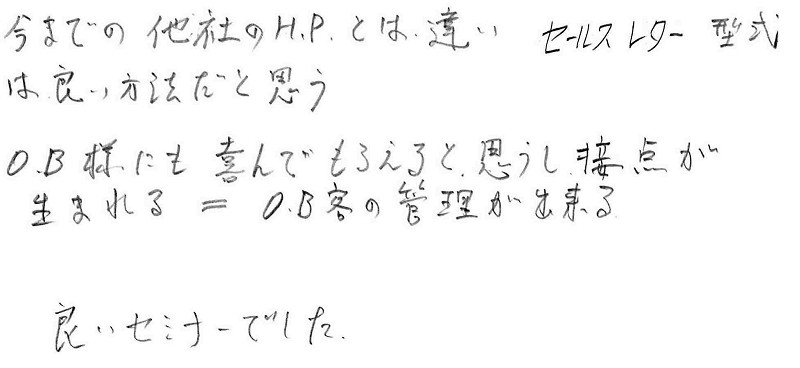 今までの他社のH.P.とは違い セールスレター型式
は良い方法だと思う
O.B様にも喜んでもらえると思うし接点が
生まれる = O.B客の管理が出来る
良いセミナーでした.